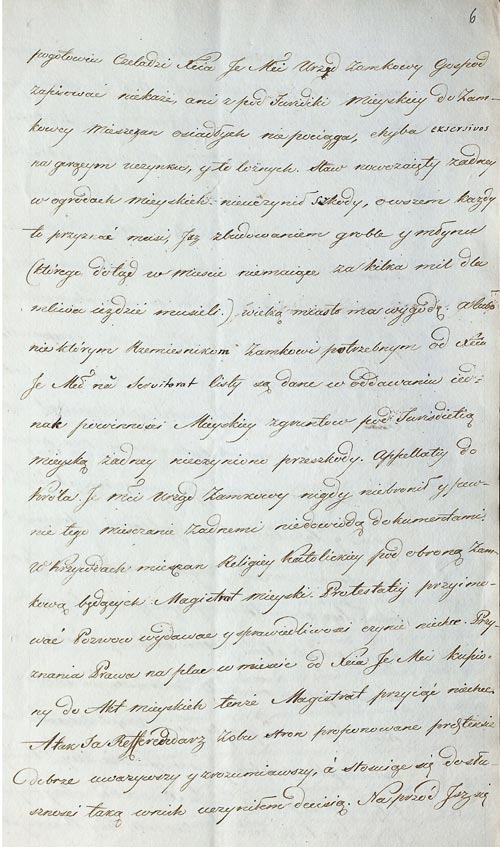 6
pogotowiu Czeladzi Xcia Je Mci Urząd Zamkowy Gospod
zapisować niekaże, ani z pod Juridiki Mieyskiey do Zam-
kowey Mieszczan osiadłych nie pociąga, chyba excersivos
na gorącym uczynku, y to loznych. Staw nowozaięty żadney
w ogrodach Mieyskich nieuczynił Szkody, owszem każdy
to przyznać musi, Jsz zbudowaniem groble y młynu
(którego dotąd w mieście niemaiące za kilka mil dla
mliwa ieździć musieli.) wielką miasto ma wygodę. A lubo
niektórym Rzemiesnikom Zamkowi potrzebnym od Xcia
Je Mci na Servitorat listy są dane w oddawaniu ied-
nak powinnosci Mieyskiey z gruntow pod Jurisdictią
mieyską żadney nieczyniono przeszkody. Appellatiy do
Króla Je Mci Urząd Zamkowy nigdy niebronił y jaw-
nie tego mieszczanie żadnemi niedowiodą dokumentami.
W krzywdach mieszczan Religiey Katolickiey pod obroną Zam-
kową będących Magistrat mieyski Protestatiy przyimo-
wać Pozwow wydawać y sprawiedliwosci czynić niechce. Przy-
znania Prawa na plac w miescie od Xcia Je Mci kupio-
ny do Akt mieyskich tenże Magistrat przyiąć niechce,
A tak Ja Refferendarz z obu stron proponowane prætensie
dobrze uważywszy y zrozumiawszy, á stosuiąc się do słu-
sznosci taką w nich uczyniłem decisią. Na przód Jsz się